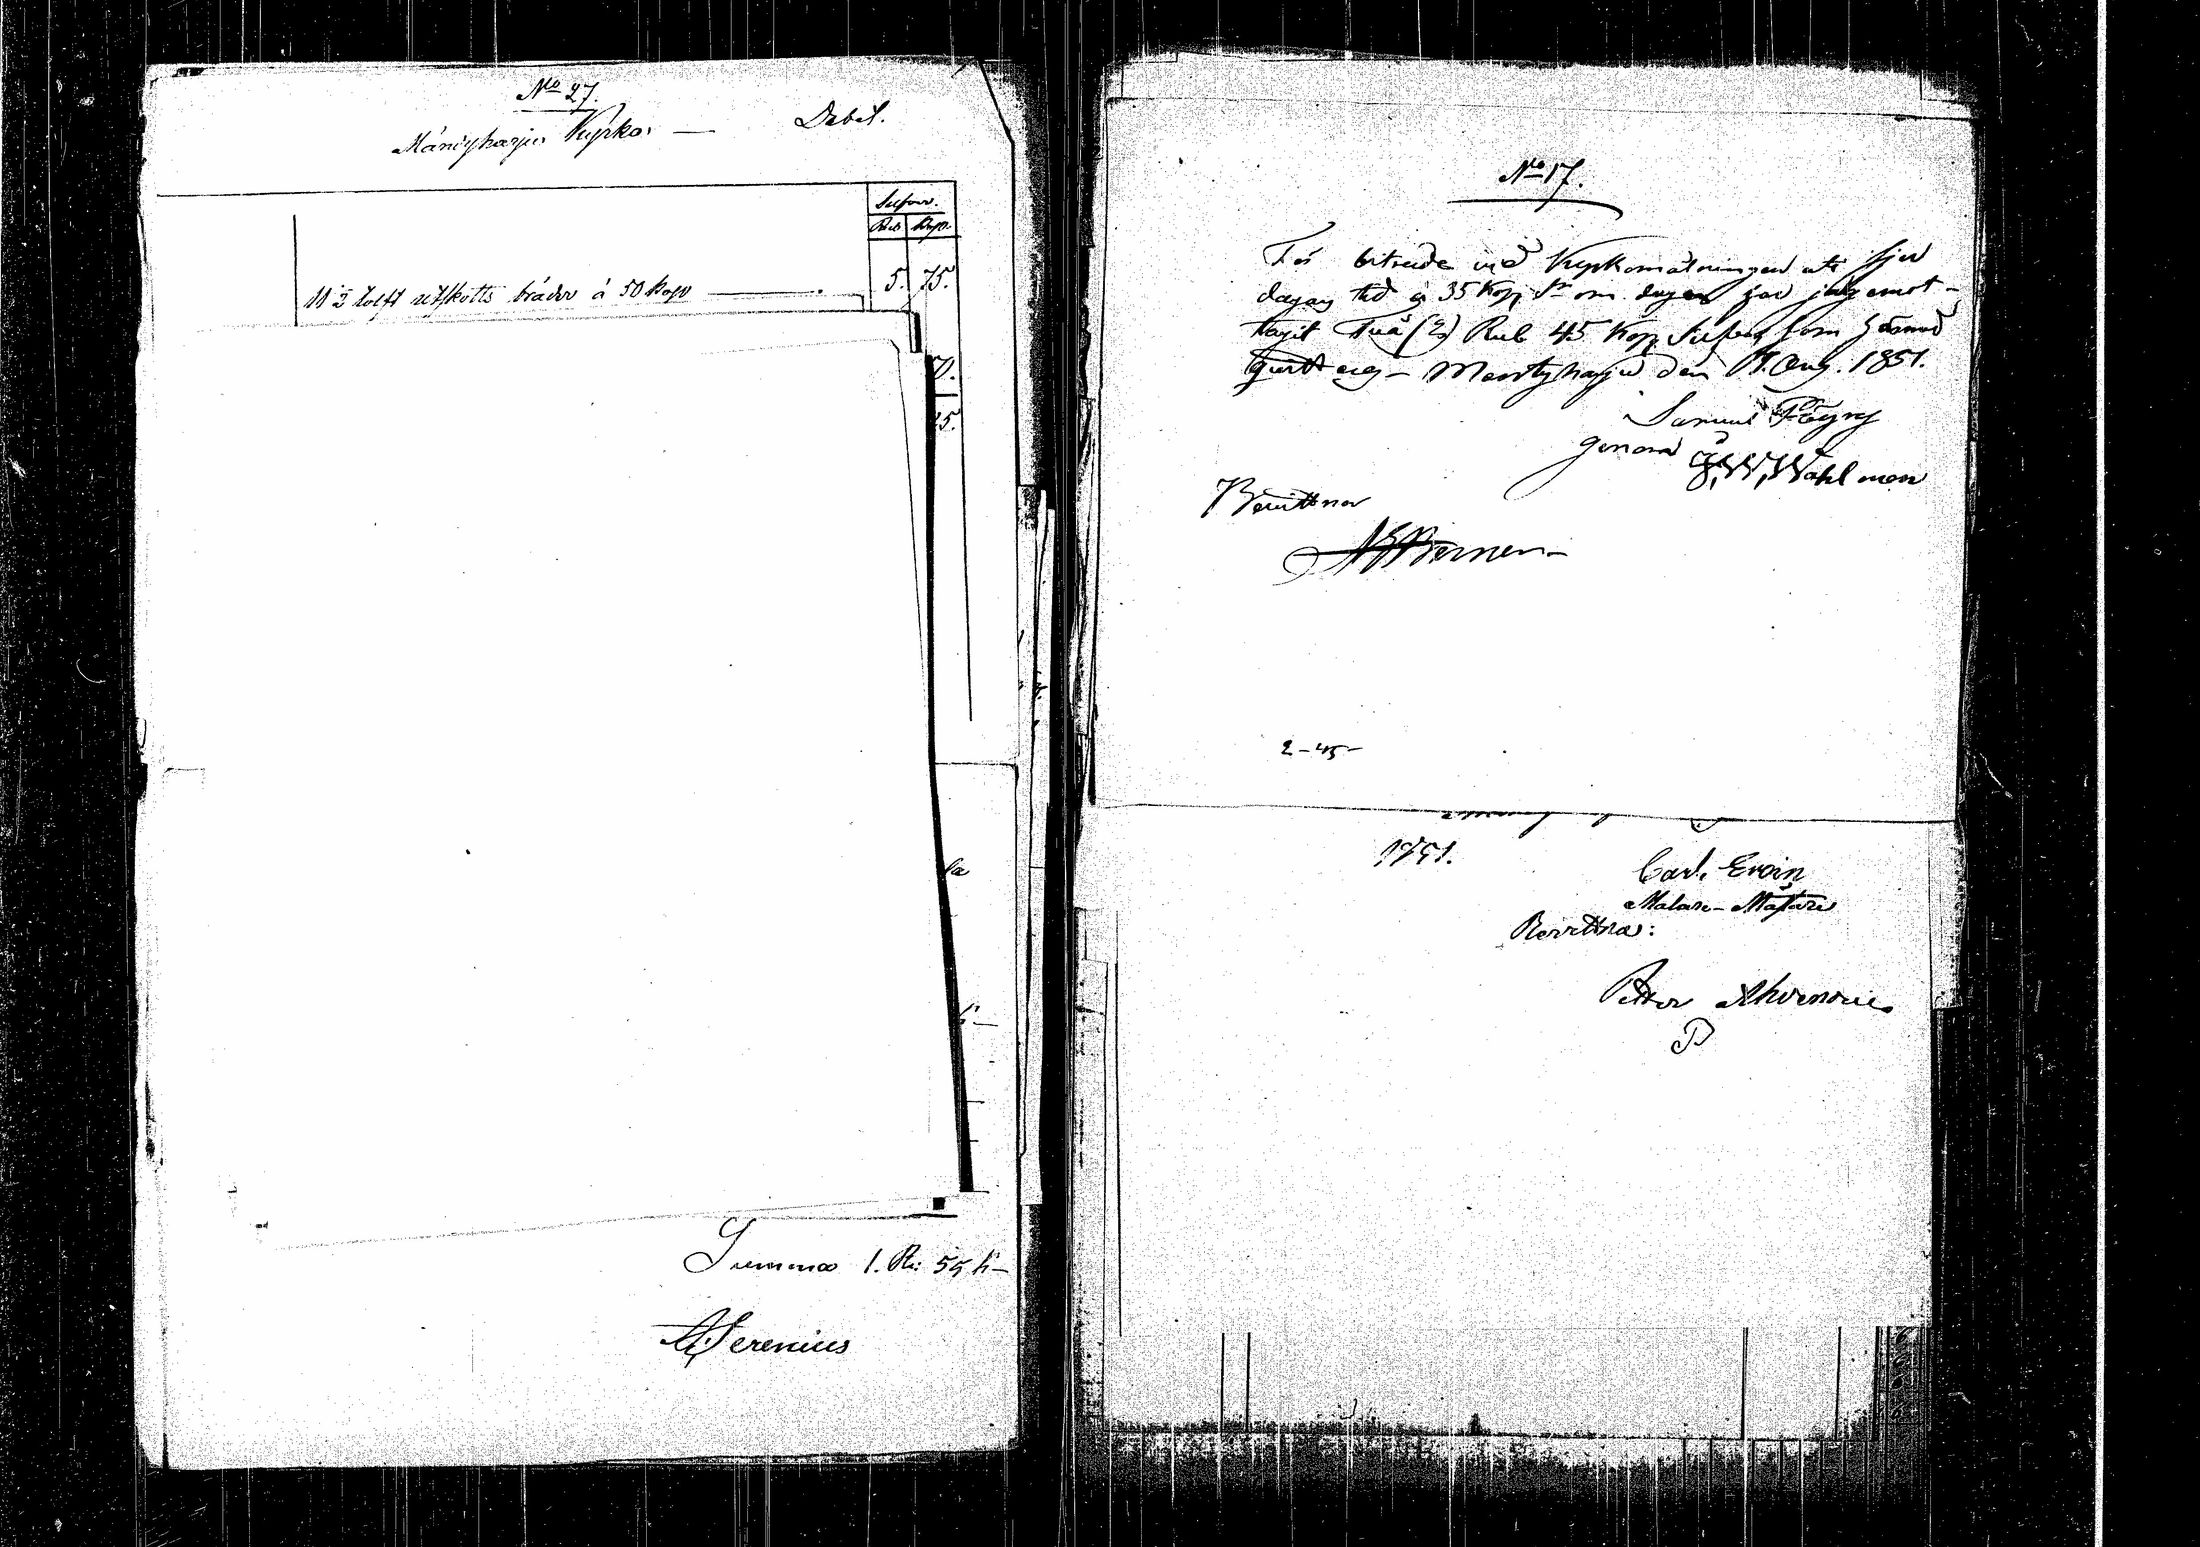 No 27.
Mäntyharju Kyrka — Debet.
Silfver.
Rub Kop.
11 ½ tolft utskotts bräder á 50 Kop — 5. 75.
70.
25.
Summa 1. Ru: 55 k—
Serenius
No 17.
För biträde vid Kyrkomålningen uti sju
dagars tid a 35 Kop Sr om dagen har jag emot-
tagit Två (2) Rub 45 Kop Silfver som härmed
qvitteras — Mentyharju den Aug. 1851.
Samuel
genom J. W. Wahlman
Bevittnar
2-45-
1851.
Carl
Målare-Mästare
Bevittnar:
Petter Ahvenainen
P